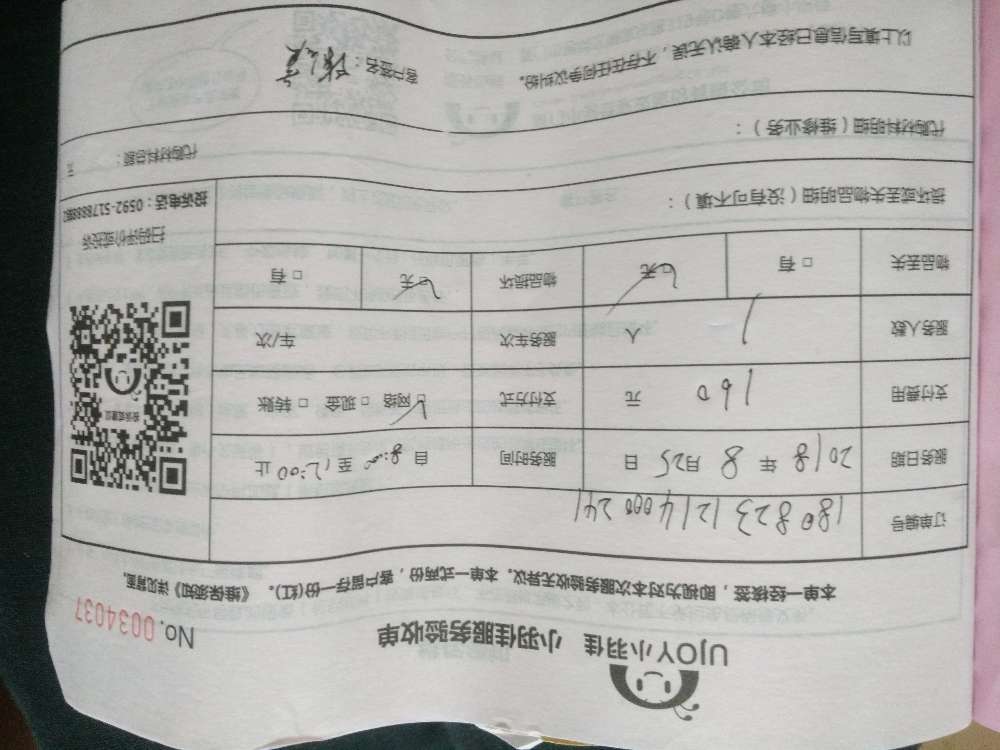 UJOY小羽佳 小羽佳服务验收单
No. 0034037
本单一经核签，即视为对本次服务验收无异议。本单一式两份，客户留存一份(红)。《维保须知》详见背面。
订单编号 180823121400024
服务日期 2018 年 8 月 25 日 服务时间 自 8:00 至 12:00 止
支付费用 160 元 支付方式 □ 网络 □ 现金 □ 转账
服务人数 1 人 服务车次 车/次
物品丢失 □ 有 □ 无 物品损坏 □ 无 □ 有
投诉或建议
扫码评价或投诉
投诉电话：0592-5178888
损坏或丢失物品明细（没有可不填）：
代购材料明细（维修业务）： 代购材料总额： 元
以上填写信息已经本人确认无误，不存在任何争议纠纷。 客户签名：